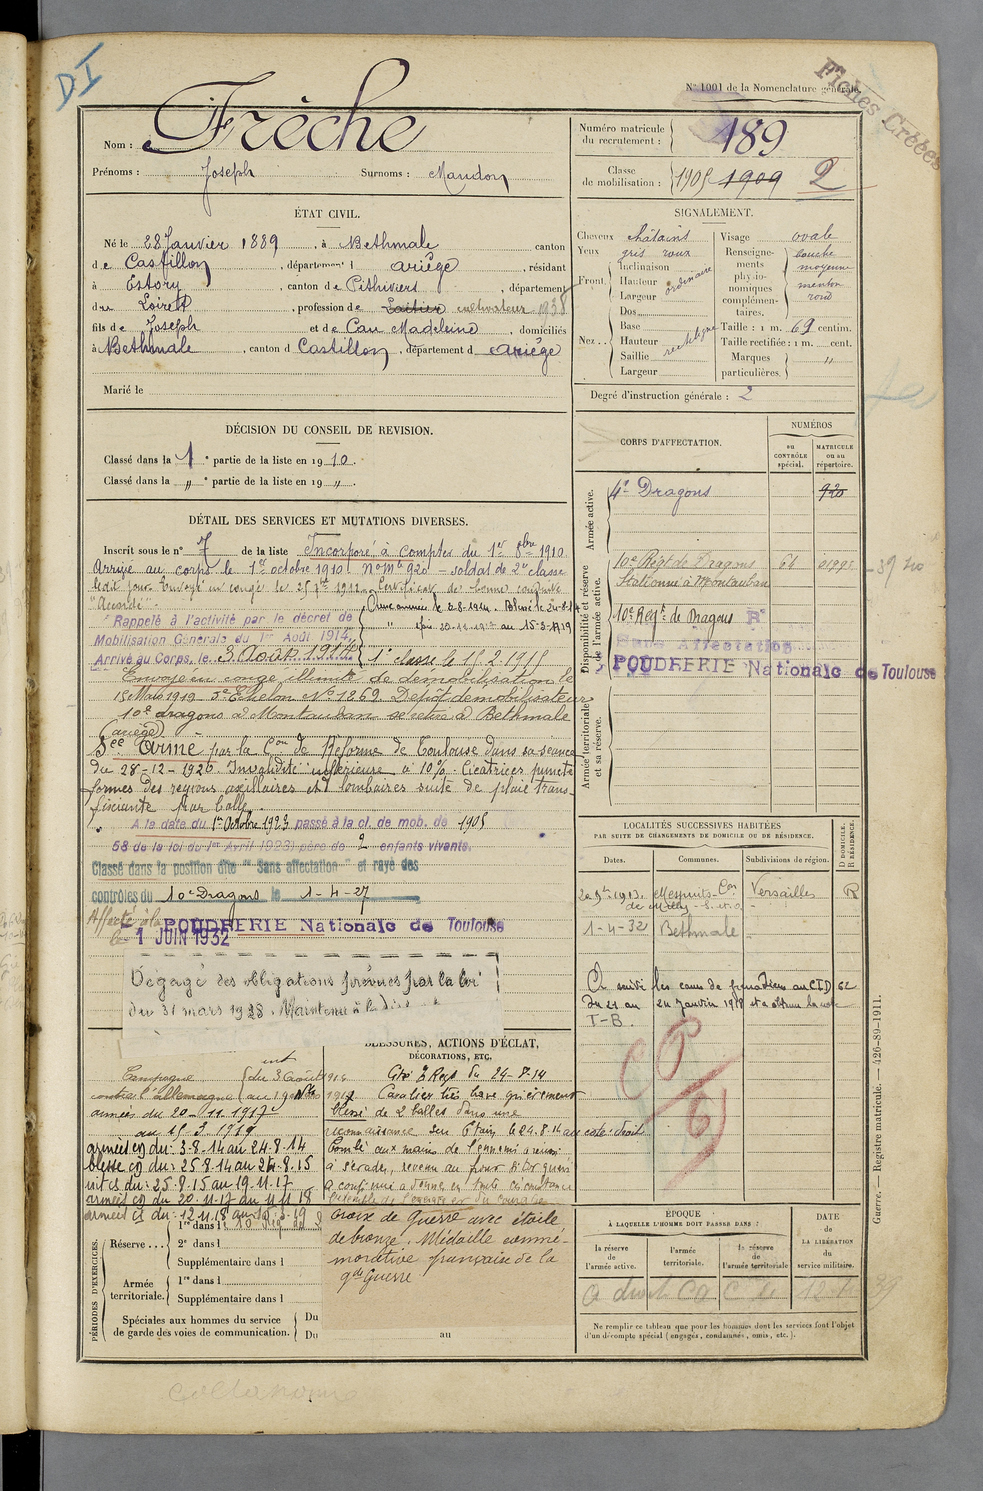 DI
N° 1001 de la Nomenclature générale.
Fiches Créées
Nom : Frèche
Prénoms : Joseph Surnoms : Maudon
Numéro matricule du recrutement : 189
Classe de mobilisation : 1905 1909 2
ÉTAT CIVIL.
Né le 28 Janvier 1889, à Bethmale canton
de Castillon, département d ariège, résidant
à Estouy, canton de Pithiviers, département
du Loiret, profession de Laitier cultivateur 1938
fils de Joseph et de Cau Madeleine, domiciliés
à Bethmale, canton d Castillon, département d ariège
Marié le
SIGNALEMENT.
Cheveux châtains
Yeux gris roux
Front. Inclinaison
Hauteur ordinaire
Largeur
Nez. Dos
Base
Hauteur rectiligne
Saillie
Largeur
Visage ovale
Renseignements physionomiques complémentaires. bouche moyenne menton rond
Taille : 1 m. 69 centim.
Taille rectifiée : 1 m. cent.
Marques particulières. "
Degré d'instruction générale : 2
DÉCISION DU CONSEIL DE REVISION.
Classé dans la 1e partie de la liste en 1910.
Classé dans la " e partie de la liste en 19 ".
DÉTAIL DES SERVICES ET MUTATIONS DIVERSES.
Inscrit sous le n° 7 de la liste Incorporé à compter du 1er 8bre 1910.
Arrivé au corps le 1er octobre 1910. No Mle 920 – soldat de 2e classe
ledit jour. Envoyé en congé le 25 7bre 1912. Certificat de bonne conduite
"Accordé".
Rappelé à l'activité par le décret de
Mobilisation Générale du 1er Août 1914,
Arrivé au Corps, le 3 Août 1914 1e classe le 15 2 1915
Envoyé en congé illimité de démobilisation le
15 Mars 1919 3e Echelon No 1269 Dépôt démobilisateur
10e dragons à Montauban se retire à Bethmale
(ariège)
Sce Armé par la Con de Réforme de Toulouse dans sa séance
du 28-12-1920. Invalidité inférieure à 10% – Cicatrices puncti
formes des régions axillaires et lombaires suite de plaie trans-
fixiante par balle.
A la date du 1er Octobre 1923 passé à la cl. de mob. de 1905
58 de la loi du 1er Avril 1923) père de 2 enfants vivants.
Classé dans la position dite "Sans affectation" et rayé des
contrôles du 10e Dragons le 1-4-27
Affecté à la POUDRERIE Nationale de Toulouse
le 1 JUIN 1932
Dégagé des obligations prévues par la loi
du 31 mars 1928. Maintenu à la
CORPS D'AFFECTATION.
NUMÉROS
au CONTRÔLE spécial.
MATRICULE ou au répertoire.
Armée active.
4e Dragons 920
Disponibilité et réserve de l'armée active.
10e Régt de Dragons 66
Stationné à Montauban
10e Régt de Dragons Rt
Sans Affectation
POUDRERIE Nationale de Toulouse
Armée territoriale et sa réserve.
LOCALITÉS SUCCESSIVES HABITÉES
PAR SUITE DE CHANGEMENTS DE DOMICILE OU DE RÉSIDENCE.
D DOMICILE. R RÉSIDENCE.
Dates. Communes. Subdivisions de région.
1913. Mespuits Con Versailles R
de Milly - S. et O.
1-4-32 Bethmale
A suivi les cours de grenadiers au C.I.D 62
du 21 au 24 Janvier 1918 et a obtenu la note
T-B.
CP/6
BLESSURES, ACTIONS D'ÉCLAT,
DÉCORATIONS, ETC.
Campagne du 3 Août 1914
contre l'allemagne
armées du 20-11 1917
au 15-3 1919
armées cg du: 3-8-14 au 24-8-14
blessé cg du: 25-8-14 au 24-8-15
int cs du: 25-8-15 au 19-11-17
armées cg du 20-11-17 au 11-11 18
armées cs du: 12-11-18 au 15-3-19
Cité Régt du 24-8-14
Cavalier très brave grièvement
blessé de 2 balles dans une
reconnaissance sur Etain le 24.8.14 au coté droit
Tombé aux mains de l'ennemi
à s'évader, revenu au front
a continué à donner en toute circonstance
Croix de Guerre avec étoile
de bronze. Médaille commé-
morative française de la
gde Guerre
PÉRIODES D'EXERCICES.
Réserve... 1re dans l
2e dans l
Supplémentaire dans l
Armée territoriale. 1re dans l
Supplémentaire dans l
Spéciales aux hommes du service de garde des voies de communication. Du
Du au
EPOQUE
À LAQUELLE L'HOMME DOIT PASSER DANS :
la réserve de l'armée active.
l'armée territoriale.
la réserve de l'armée territoriale
DATE de LA LIBÉRATION du service militaire.
Ne remplir ce tableau que pour les hommes dont les services font l'objet
d'un décompte spécial (engagés, condamnés, omis, etc.).
Guerre. — Registre matricule. — 426-89-1911.